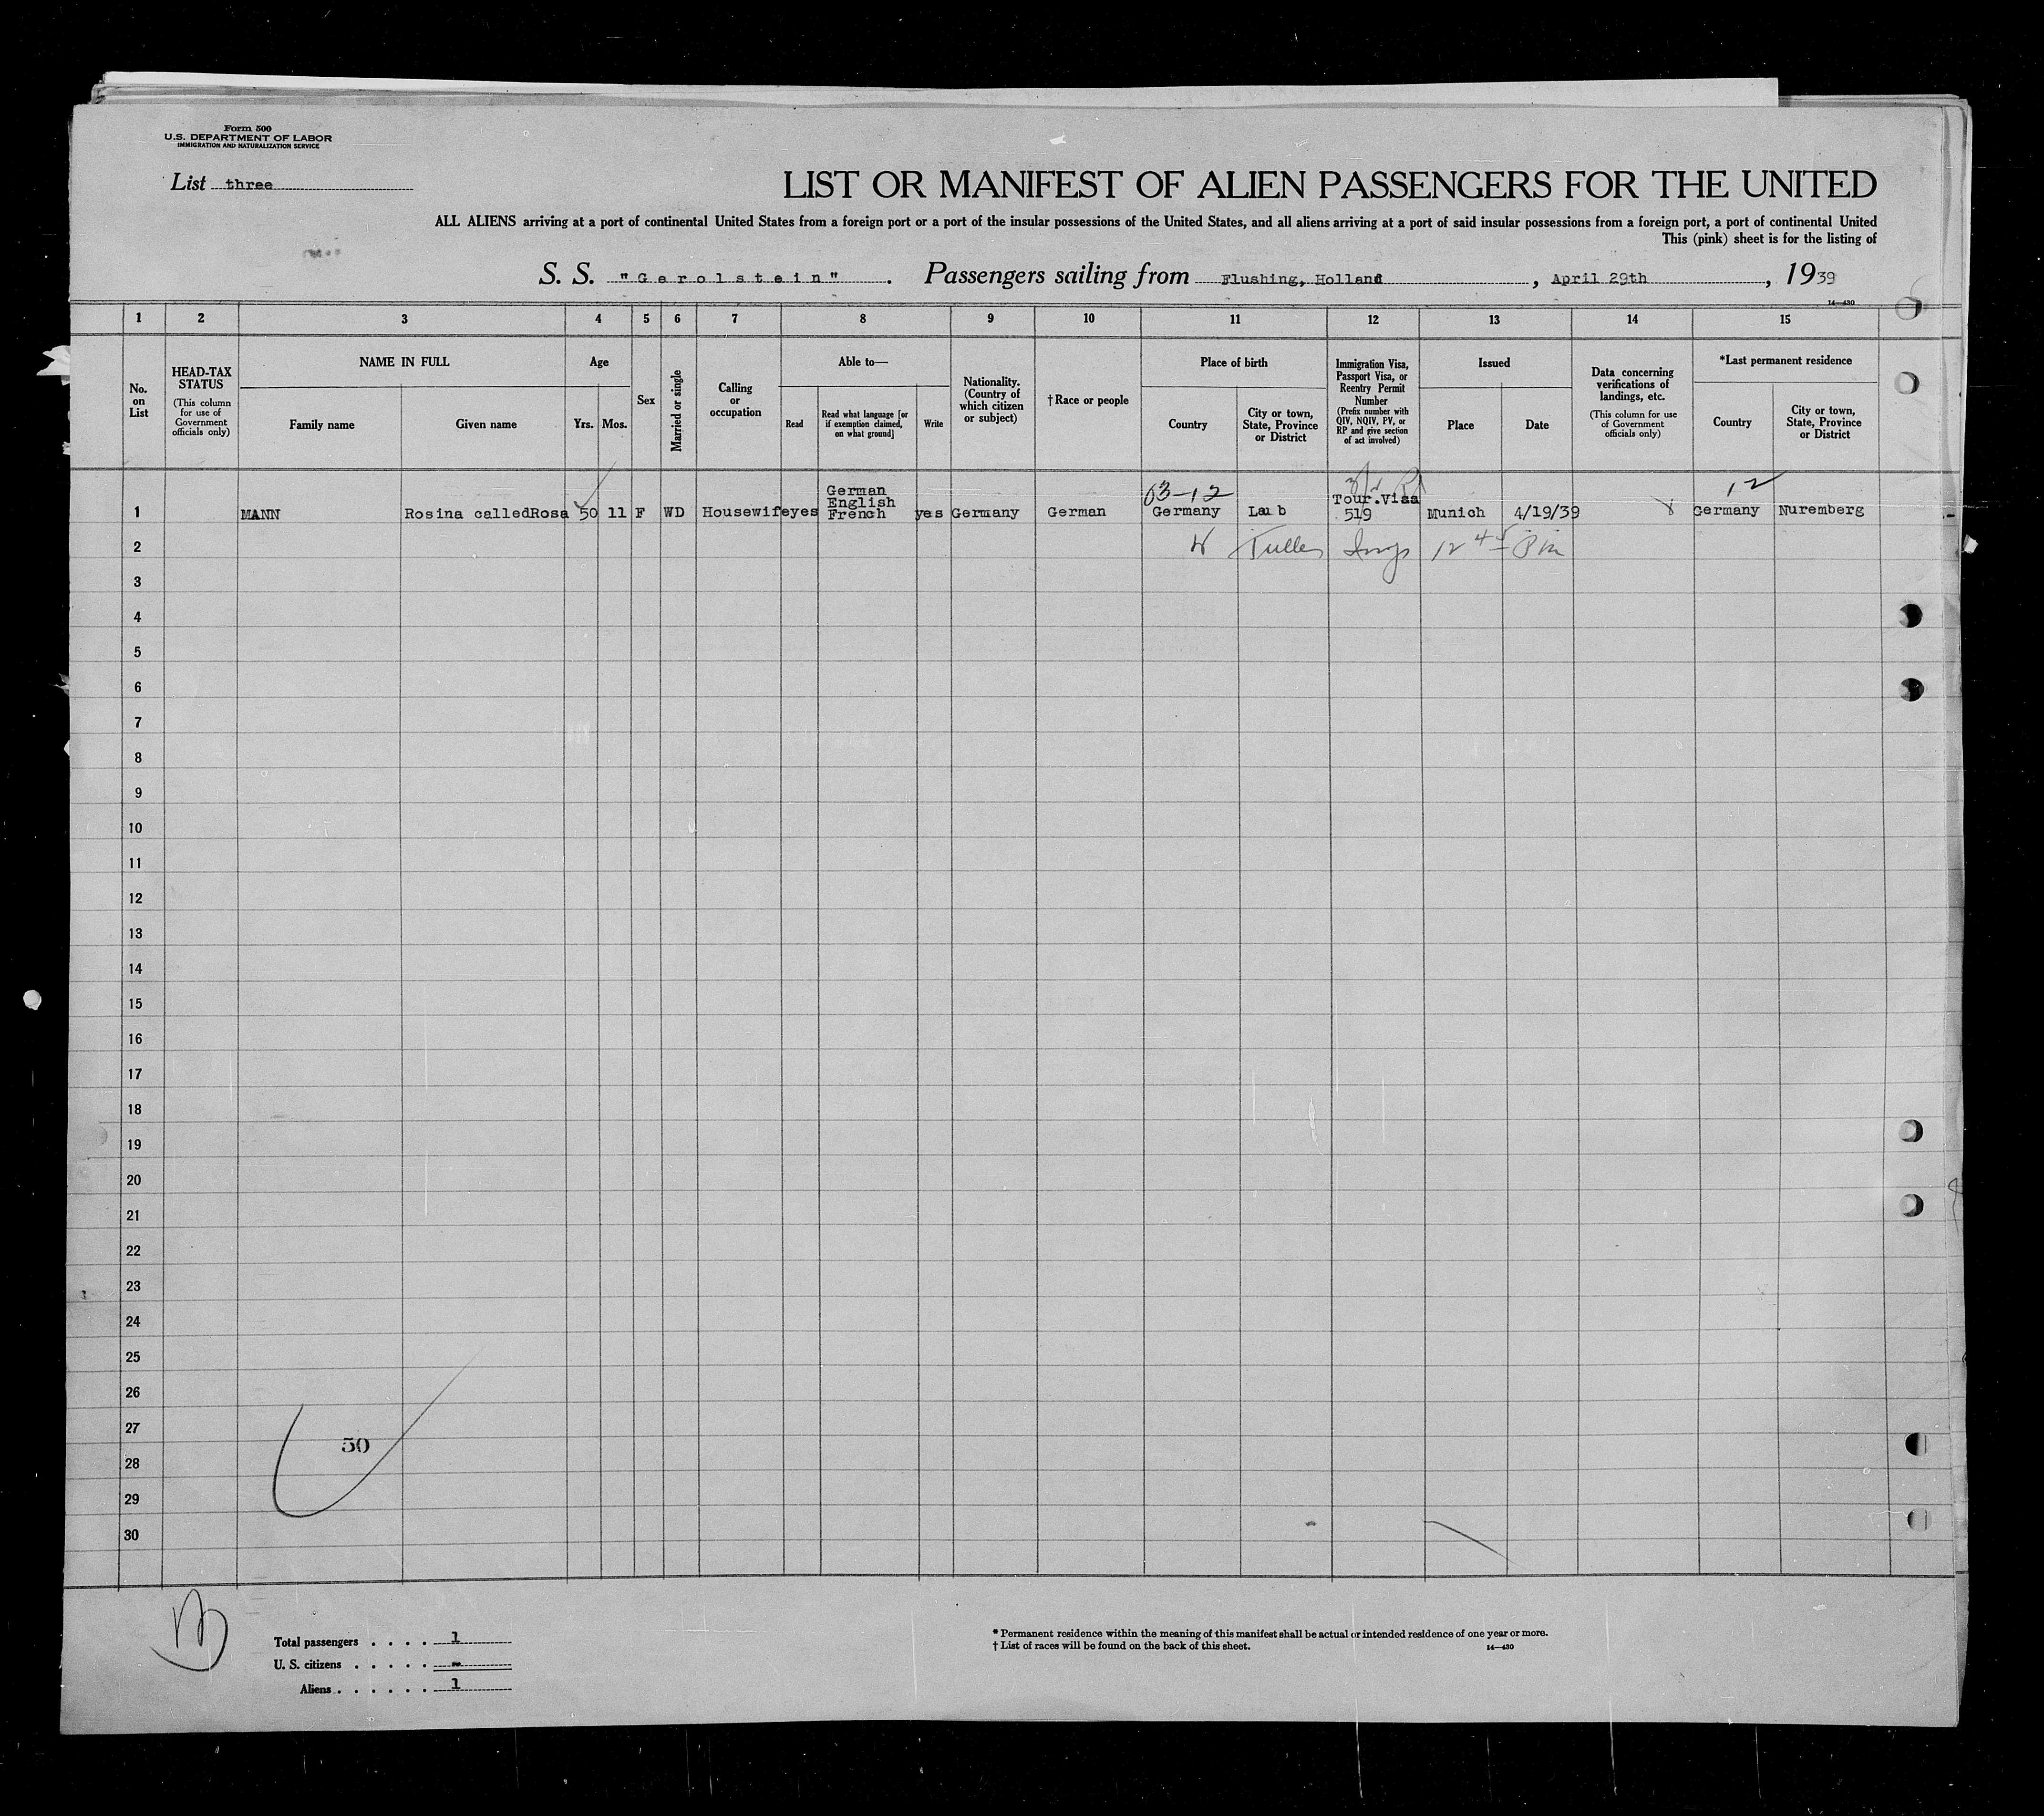 Form 500
U.S. DEPARTMENT OF LABOR
IMMIGRATION AND NATURALIZATION SERVICE
List three
LIST OR MANIFEST OF ALIEN PASSENGERS FOR THE UNITED
ALL ALIENS arriving at a port of continental United States from a foreign port or a port of the insular possessions of the United States, and all aliens arriving at a port of said insular possessions from a foreign port, a port of continental United
This (pink) sheet is for the listing of
S. S. "Gerolstein". Passengers sailing from Flushing, Holland, April 29th, 1939
14—430
1 2 3 4 5 6 7 8 9 10 11 12 13 14 15
No. on List
HEAD-TAX STATUS
(This column for use of Government officials only)
NAME IN FULL
Family name
Given name
Age
Yrs.
Mos.
Sex
Married or single
Calling or occupation
Able to—
Read
Read what language [or if exemption claimed, on what ground]
Write
Nationality. (Country of which citizen or subject)
†Race or people
Place of birth
Country
City or town, State, Province or District
Immigration Visa, Passport Visa, or Reentry Permit Number
(Prefix number with QIV, NQIV, PV, or RP and give section of act involved)
Issued
Place
Date
Data concerning verifications of landings, etc.
(This column for use of Government officials only)
*Last permanent residence
Country
City or town, State, Province or District
03-12
12
1 MANN Rosina calledRosa 50 11 F WD Housewifeyes German English French yes Germany German Germany Laub Tour.Visa 519 Munich 4/19/39 Germany Nuremberg
2
3
4
5
6
7
8
9
10
11
12
13
14
15
16
17
18
19
20
21
22
23
24
25
26
27
50
28
29
30
Total passengers . . . . 1
U. S. citizens . . . . . -
Aliens . . . . . . 1
* Permanent residence within the meaning of this manifest shall be actual or intended residence of one year or more.
† List of races will be found on the back of this sheet.
14—430